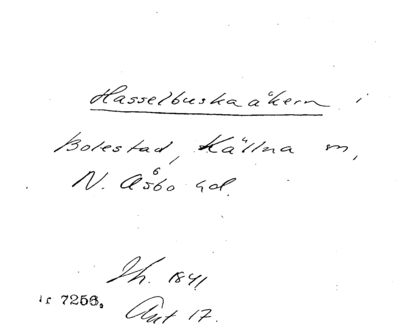 Hasselbuskaåkern i
Bolestad, Källna sn,
N. Åsbo hd.
Jh. 1841
Akt 17.
7256.